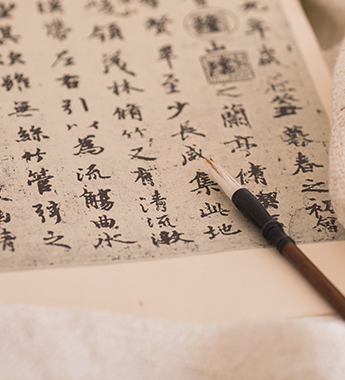 九年歲在癸丑暮春之初會
山陰之蘭亭脩禊
畢至少長咸集此地
領茂林脩竹又有清流激
帶左右引以為流觴曲水
其次雖無絲竹管弦之
幽情